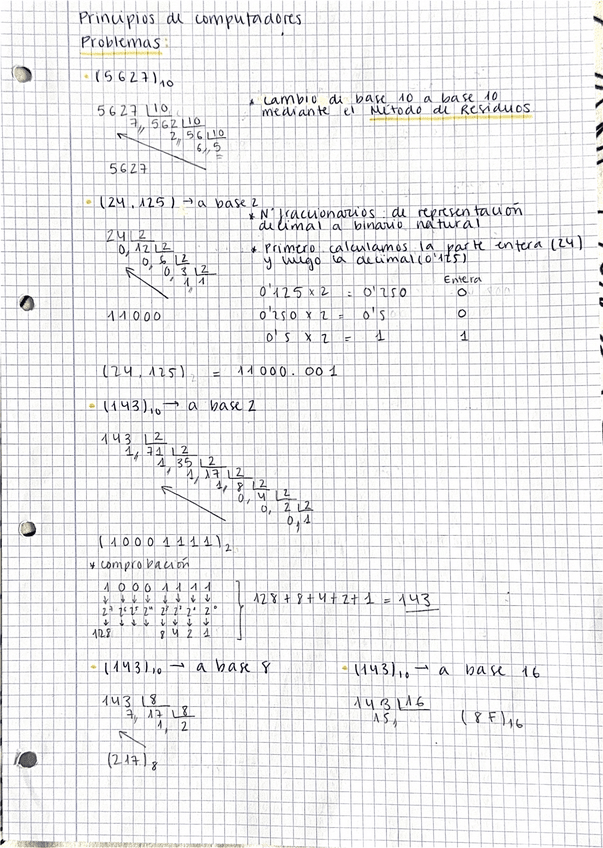 Principios de computadores
Problemas:
(5627)₁₀
* Cambio di base 10 a base 10
mediante el Método de Residuos
5627 |10
7,, 562 |10
2,, 56 |10
6,, 5
5627
(24,125) → a base 2
* Nº fraccionarios de representación
decimal a binario natural
* Primero calculamos la parte entera (24)
y luego la decimal (0'125)
24 |2
0, 12 |2
0, 6 |2
0, 3 |2
1, 1
11000
Entera
0'125 x 2 = 0'250 0
0'250 x 2 = 0'5 0
0'5 x 2 = 1 1
(24,125)₂ = 11000.001
(143)₁₀ → a base 2
143 |2
1, 71 |2
1, 35 |2
1, 17 |2
1, 8 |2
0, 4 |2
0, 2 |2
0, 1
(10001111)₂
* comprobación
1 0 0 0 1 1 1 1
↓ ↓ ↓ ↓ ↓ ↓ ↓ ↓
2⁷ 2⁶ 2⁵ 2⁴ 2³ 2² 2¹ 2⁰
↓ ↓ ↓ ↓ ↓ ↓ ↓ ↓
128 8 4 2 1
128 + 8 + 4 + 2 + 1 = 143
(143)₁₀ → a base 8
143 |8
7, 17 |8
1, 2
(217)₈
(143)₁₀ → a base 16
143 |16
15,
(8F)₁₆